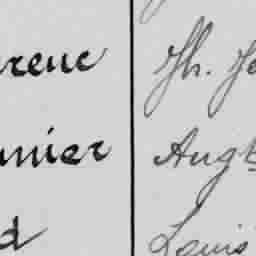 renc Jh. Jo
nier Augt
d Louis